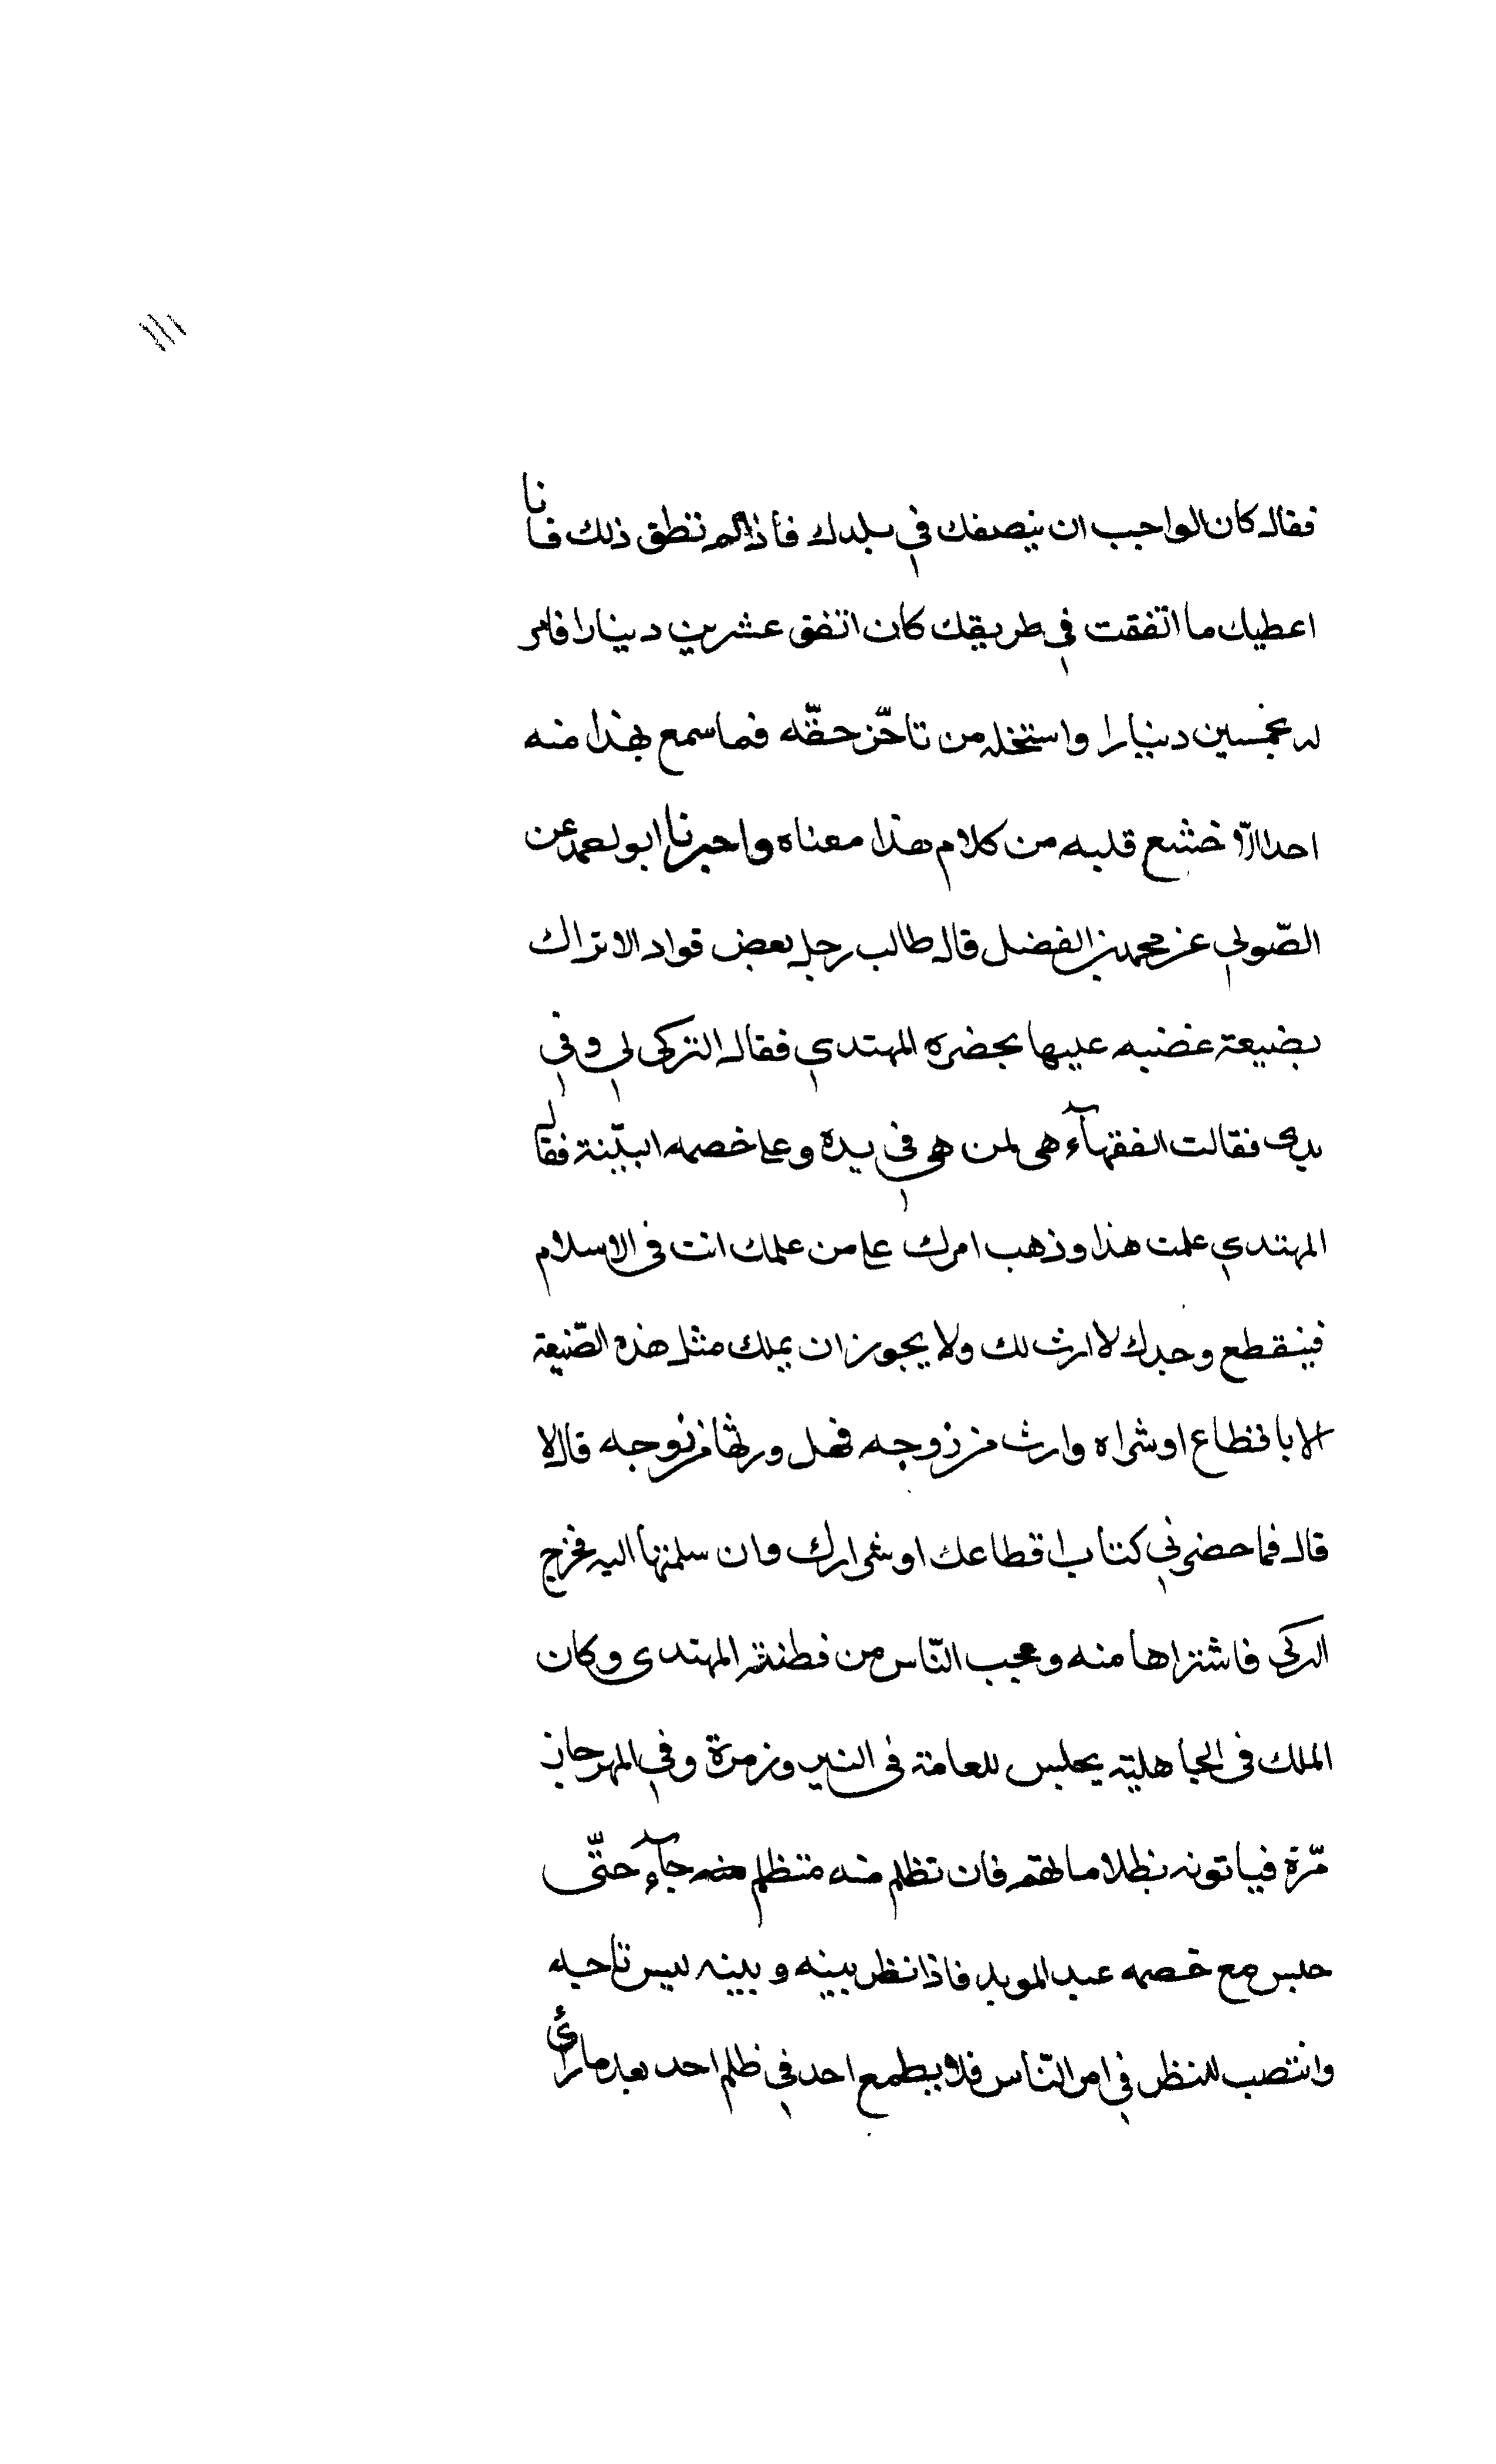 ١١١
فقال كان الواجب ان ينصفك في بلدك فاذا لم تطق ذلك فانا
اعطيك ما اتفقت في طريقك كان اتفق عشرين دينارا فامر
له بخمسين دينارا واستخله من تاخّر حقّه فما سمع بهذا منه
احدا الّا خشع قلبه من كلام هذا معناه واخبرنا ابو احمد عن
الصّولي عن محمد بن الفضل قال طالب رجل بعض قواد الاتراك
بضيعة غضبه عليها بحضره المهتدي فقال التركى لي وفي
يدى فقالت الفقهآء هى لمن هي في يده وعلى خصمه البيّنة فقال
المهتدي علمت هذا وذهب امرك على من علمك انت في الاسلام
فينقطع وحدك لا ارث لك ولا يجوز ان يملك مثل هذه الضّيعة
الا باقطاع او شراه وارث من زوجه فهل ورثتها من زوجه قال لا
قال فما حضرني كتاب اقطاعك او شرارك وان سلمتها اليه فخرج
التركى فاشتراها منه وعجب النّاس من فطنة المهتدى وكان
الملك في الجاهلية يجلس للعامة في النيروز مرة وفي المهرجان
مّرة فياتونه بظلاماتهم فان تظلم منه متظلم منه جآء حتّى
جلس مع خصمه عبد الموبد فاذا نظر بينه وبينه لبس تاجه
وانتصب للنظر في امر النّاس فلا يطمع احد في ظلم احد بعد ما رأى